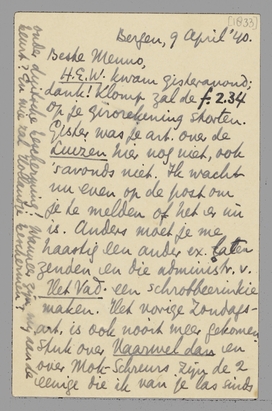 [1833]
Bergen, 9 April '40.
Beste Menno,
H.E.W. kwam gisteravond;
dank! Klomp zal de f. 2.34
op je girorekening storten.
Gister was je art. over de
Luizen hier nog niet, ook
's avonds niet. Ik wacht
nu even op de post om
je te melden of het er nu
is. Anders moet je me
haastig een ander ex. laten
zenden en die administr. v.
Het Vad. een schrobbeerinkje
maken. Het vorige Zondags-
art. is ook nooit meer gekomen.
Stuk over Vaarwel dan en
over Mok-Schreurs zijn de 2
eenige die ik van je las sinds
onder duitsche bescherming! Wanneer zijn wij aan de
beurt? En wie zal Holland